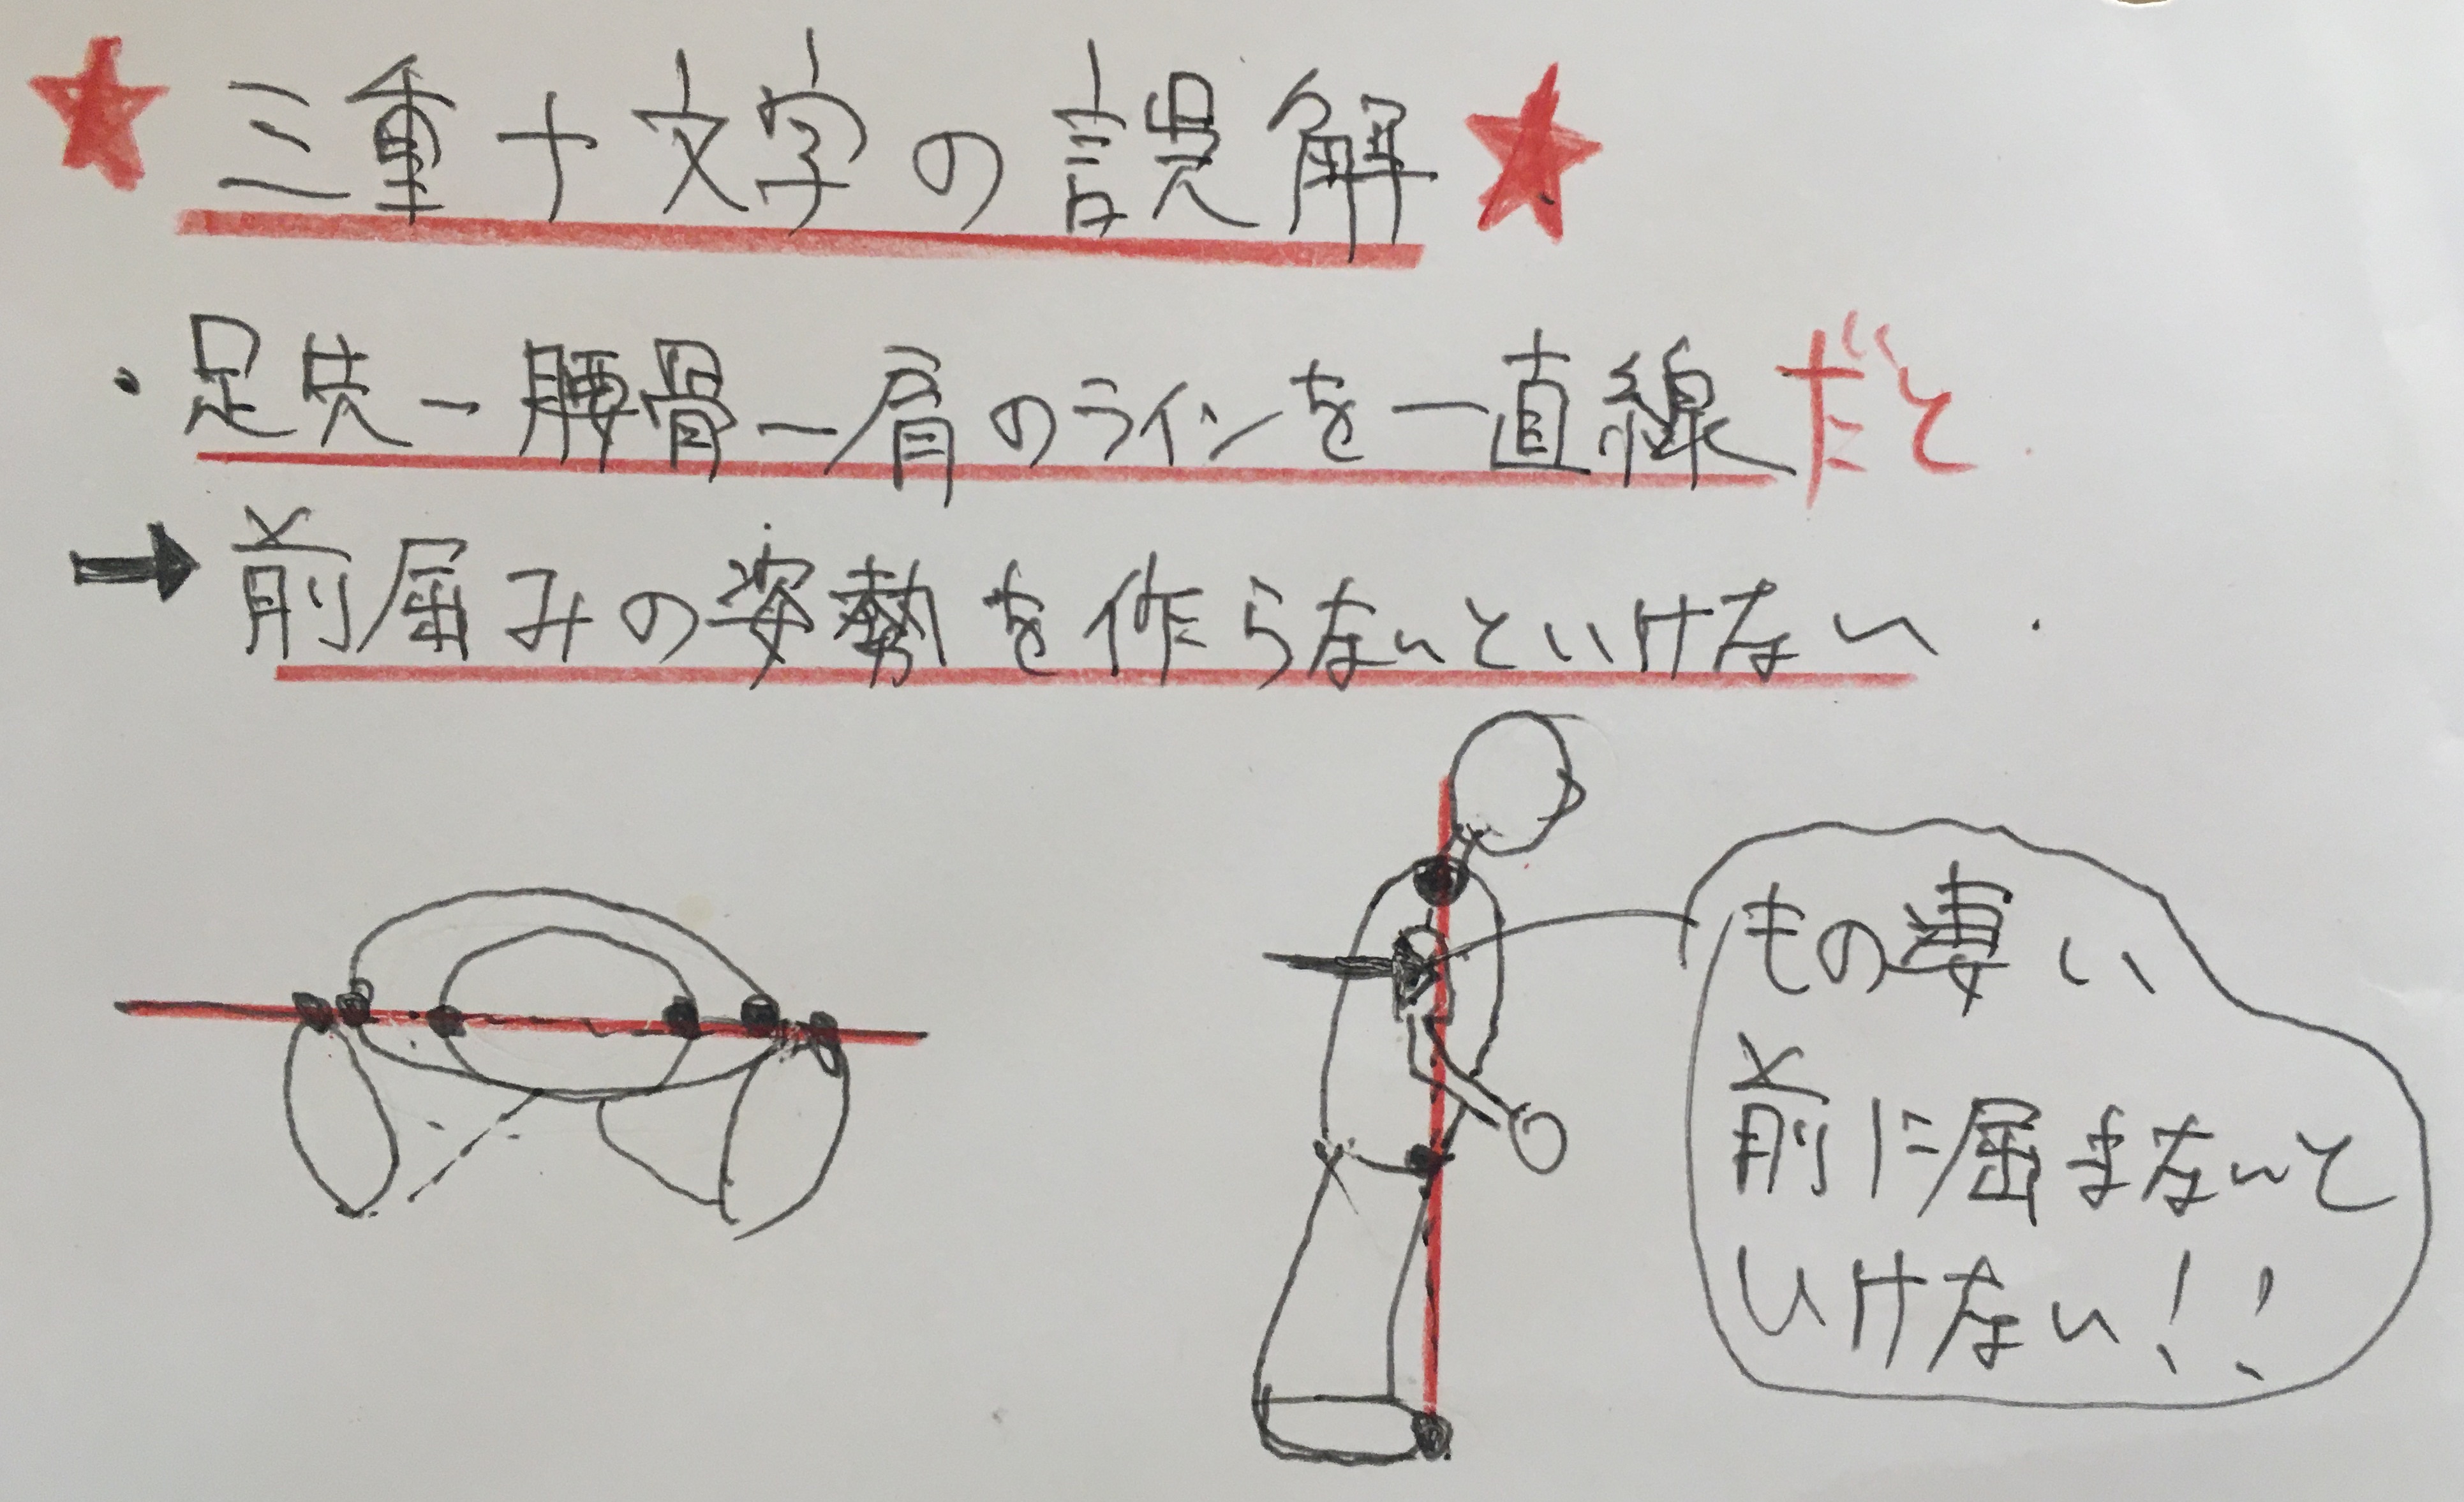 ★三重十文字の誤解★
・足先ー腰骨ー肩のラインを一直線だと
➡前屈みの姿勢を作らないといけない.
もの凄い
前に屈まないと
いけない!!